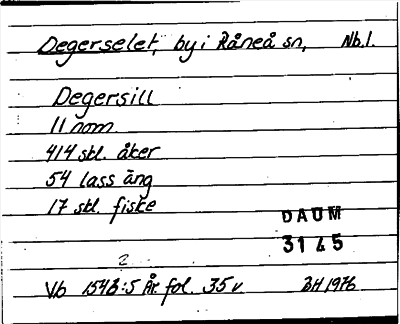 Degerselet, by i Råneå sn, Nb.l.
Degersill
11 nom
414 skl. åker
54 lass äng
17 skl. fiske
DAUM
3145
2
Vb 1543:5 År fol. 35 v BH 1976